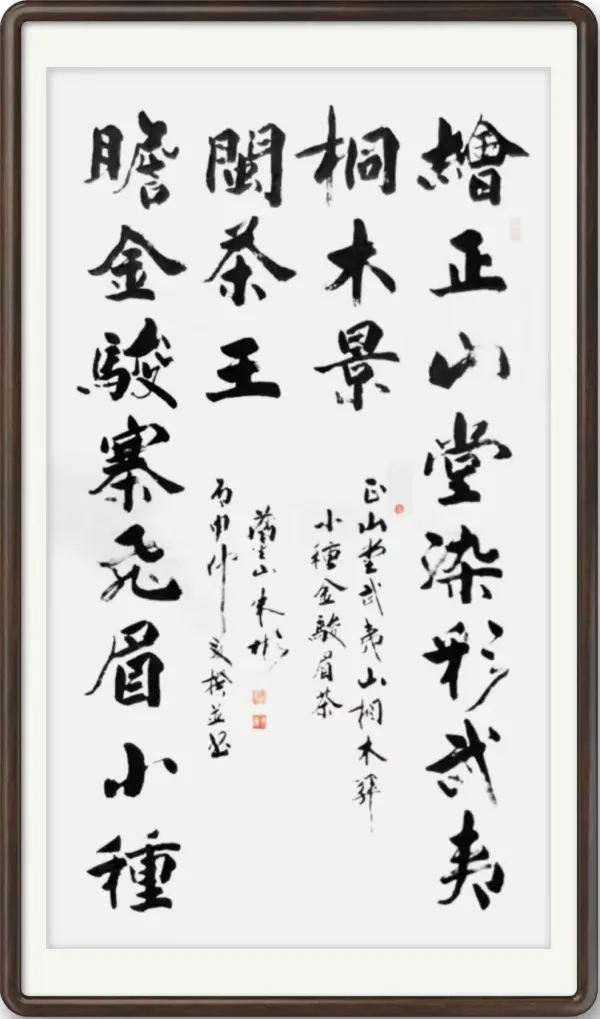 繪正山堂染彩武夷
桐木景
瞻金駿寨飛眉小種
閩茶王
正山堂武夷山桐木
小種金駿眉茶
山東彬
丙申仲 撰並書